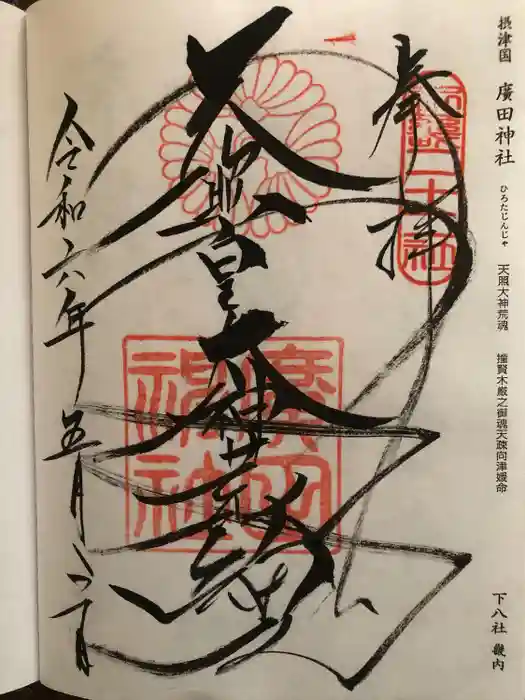 摂津国 廣田神社 ひろたじんじゃ 天照大神荒魂 撞賢木厳之御魂天疎向津媛命 下八社 畿内
奉拝
二十二社
天照皇大神荒魂
廣田神社
令和六年五月六日